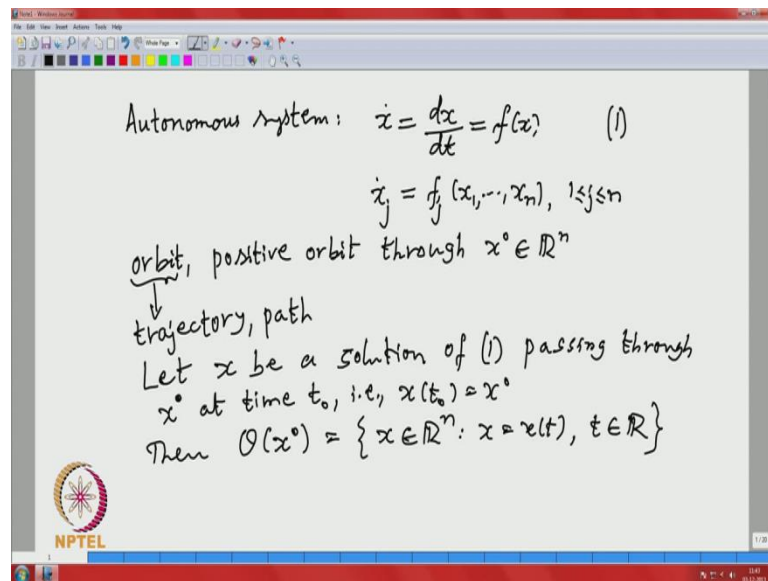 Note1 - Windows Journal
File Edit View Insert Actions Tools Help
Whole Page
B I
Autonomous system: ẋ = dx/dt = f(x), (1)
ẋ_j = f_j (x_1, ..., x_n), 1≤j≤n
orbit, positive orbit through x° ∈ ℝⁿ
↓
trajectory, path
Let x be a solution of (1) passing through
x° at time t_0, i.e., x(t_0) = x°
Then O(x°) = { x ∈ ℝⁿ : x = x(t), t ∈ ℝ }
NPTEL
1
1/20
11:43